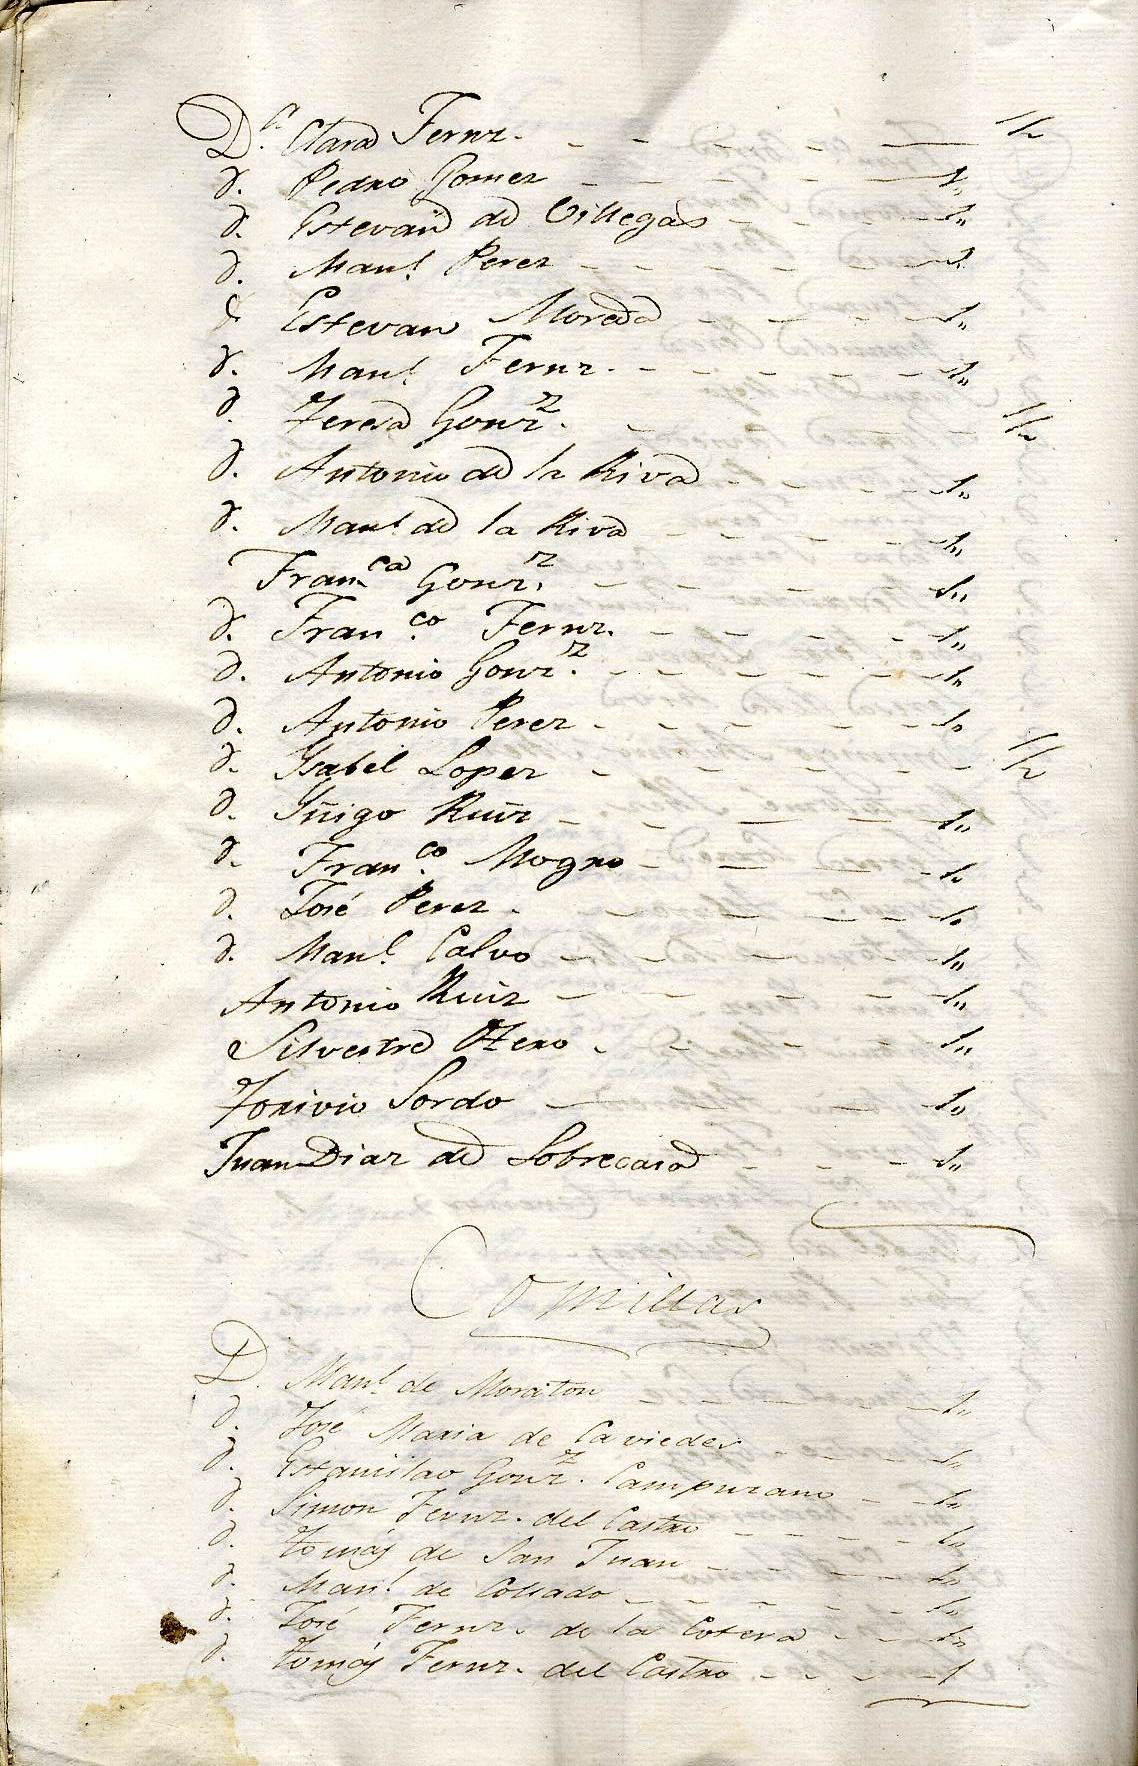 D.ª Clara Fernz. - - - - 1/2
d. Pedro Gomez - - - - 1„
d. Estevan de Villegas - - - - 1„
d. Man.l Perez - - - - 1.
d. Estevan Moreda - - - - 1„
d. Man.l Fernz. - - - - 1„
d. Teresa Gonz.z - - - - 1/2
d. Antonio de la Riva - - - - 1„
d. Man.l de la Riva - - - - 1„
Fran.ca Gonz.z - - - - 1„
d. Fran.co Fernz. - - - - 1„
d. Antonio Gonz.z - - - - 1„
d. Antonio Perez - - - - 1„
d. Ysabel Lopez - - - - 1/2
d. Yñigo Ruiz - - - - 1„
d. Fran.co Mogro - - - - 1„
d. José Perez - - - - 1„
d. Man.l Calvo - - - - 1„
Antonio Ruiz - - - - 1„
Silvestre Otero - - - - 1„
Torivio Sordo - - - - 1„
Juan Diaz de Sobrecasa - - - - 1„
Comillas
D. Man.l de Moraton - - - - 1„
d. José Maria de Caviedes - - - - 1„
d. Estanislao Gonz.z Campuzano - - 1„
d. Simon Fernz. del Castro - - - - 1„
d. Tomás de San Juan - - - - 1„
d. Man.l de Collado - - - - 1„
d. José Fernz. de la Cotera - - - 1„
d. Tomás Fernz. del Castro - - - - 1